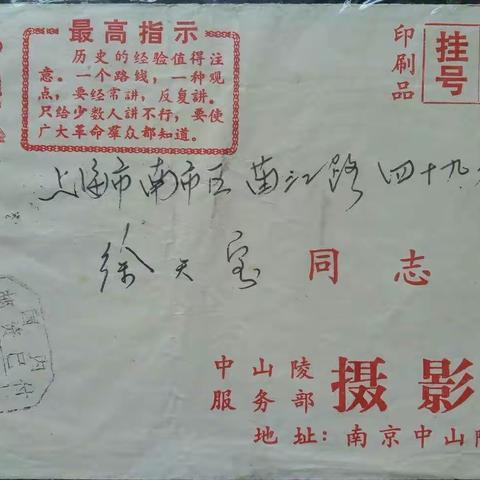 最高指示
历史的经验值得注
意。一个路线,一种观
点,要经常讲,反复讲。
只给少数人讲不行,要使
广大革命群众都知道。
印刷品
挂号
上海市南市区苗江路四十九
徐天宝 同志
国内
邮资已付
中山陵
服务部 摄影
地址:南京中山陵